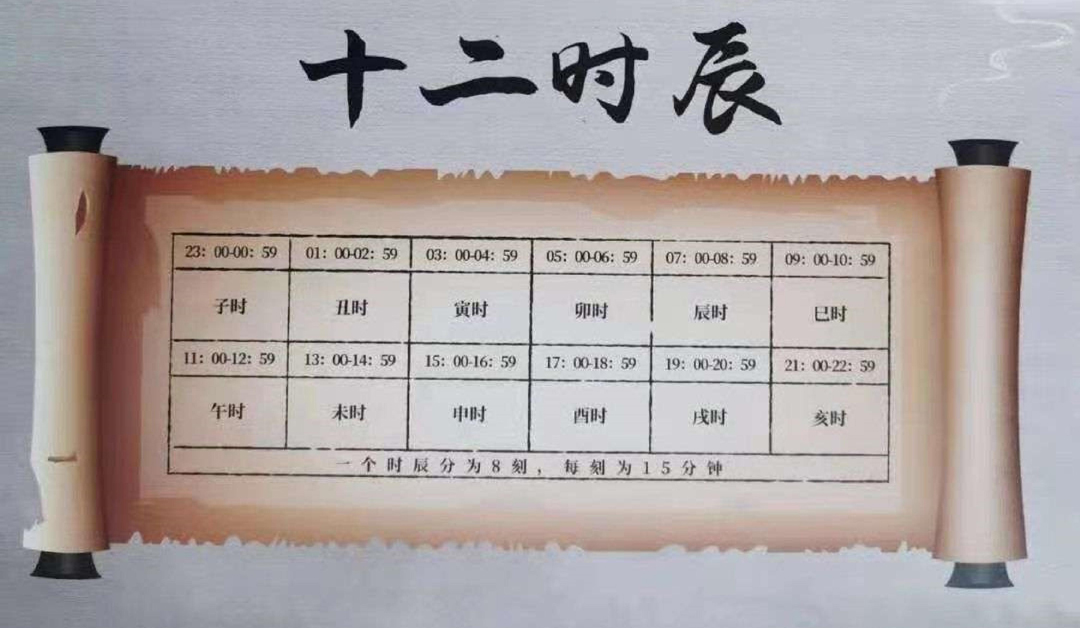 十二时辰
23：00-00：59 01：00-02：59 03：00-04：59 05：00-06：59 07：00-08：59 09：00-10：59
子时 丑时 寅时 卯时 辰时 巳时
11：00-12：59 13：00-14：59 15：00-16：59 17：00-18：59 19：00-20：59 21：00-22：59
午时 未时 申时 酉时 戌时 亥时
一个时辰分为8刻，每刻为15分钟